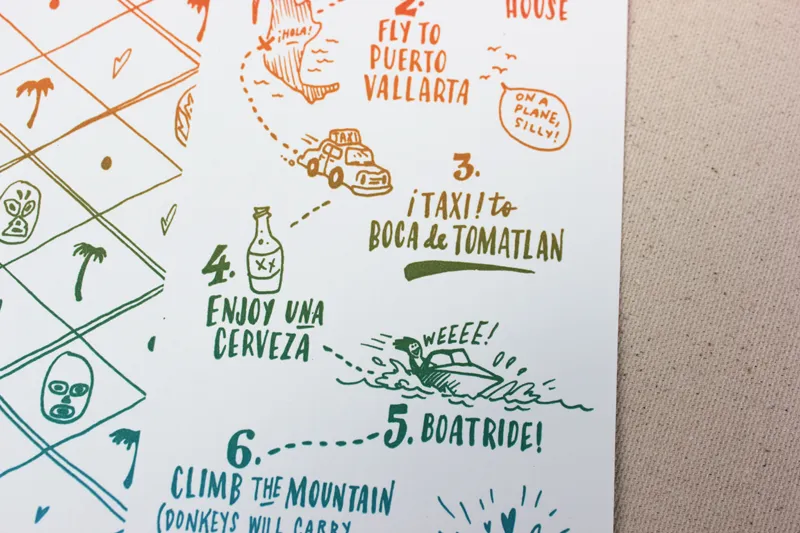 HOUSE
2.
¡HOLA!
FLY TO
PUERTO
VALLARTA
ON A
PLANE,
SILLY!
TAXI
3.
¡TAXI! to
BOCA de TOMATLAN
4.
XX
ENJOY UNA
CERVEZA
WEEEE!
5. BOATRIDE!
6.
CLIMB THE MOUNTAIN
(DONKEYS WILL CARRY